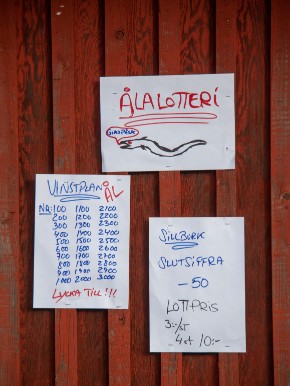 ÅLALOTTERI
VINSTPLAN
ÅL
NR: 100 1100 2100
200 1200 2200
300 1300 2300
400 1400 2400
500 1500 2500
600 1600 2600
700 1700 2700
800 1800 2800
900 1900 2900
1000 2000 3000
LYCKA TILL!!!
SILLBURK
SLUTSIFFRA
-50
LOTTPRIS
3:-/ST
4 st 10:-